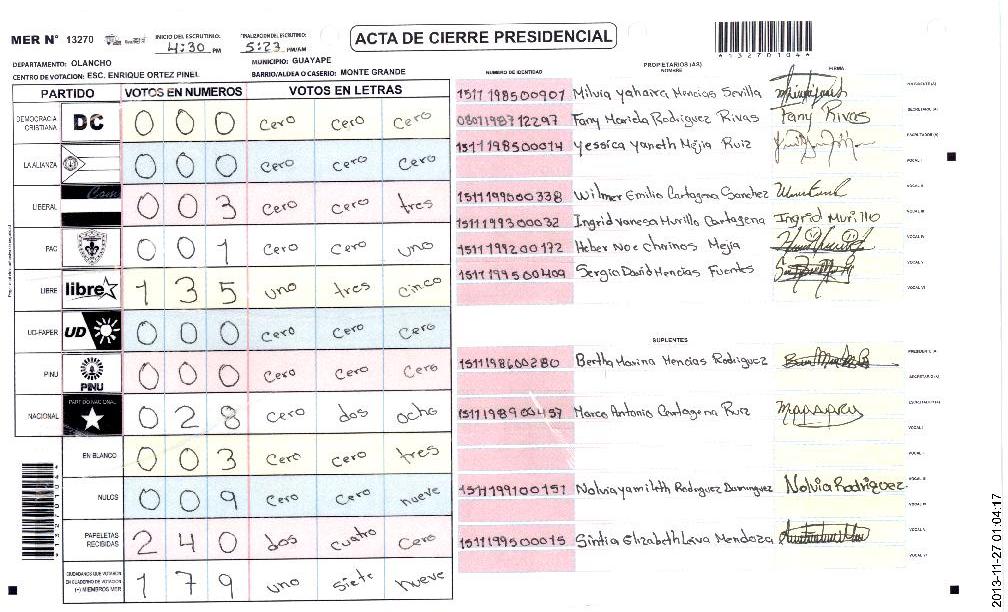 MER N° 13270 INICIO DEL ESCRUTINIO: 4:30 PM FINALIZACION DEL ESCRUTINIO: 5:23 PM/AM ACTA DE CIERRE PRESIDENCIAL *13270104*
DEPARTAMENTO: OLANCHO MUNICIPIO: GUAYAPE
CENTRO DE VOTACION: ESC. ENRIQUE ORTEZ PINEL BARRIO/ALDEA O CASERIO: MONTE GRANDE
PARTIDO VOTOS EN NUMEROS VOTOS EN LETRAS
DEMOCRACIA CRISTIANA DC 0 0 0 Cero Cero Cero
LA ALIANZA 0 0 0 Cero Cero Cero
LIBERAL 0 0 3 Cero Cero tres
PAC 0 0 1 Cero Cero uno
LIBRE libre 1 3 5 uno tres cinco
UD-FAPER UD 0 0 0 Cero Cero Cero
PINU PINU 0 0 0 Cero Cero Cero
NACIONAL PARTIDO NACIONAL 0 2 8 Cero dos ocho
EN BLANCO 0 0 3 Cero Cero tres
NULOS 0 0 9 Cero Cero nueve
PAPELETAS RECIBIDAS 2 4 0 dos cuatro Cero
CIUDADANOS QUE VOTARON EN CUADERNO DE VOTACION (+) MIEMBROS MER 1 7 9 uno siete nueve
NUMERO DE IDENTIDAD PROPIETARIOS (AS) NOMBRE FIRMA
1511198500907 Milvia Yahaira Mencias Sevilla PRESIDENTE(A)
0801198712297 Fany Mariela Rodriguez Rivas Fany Rivas SECRETARIO(A)
1511198500014 Yessica Yaneth Mejia Ruiz ESCRUTADOR(A)
VOCAL I
1511199000338 Wilmer Emilio Cartagena Sanchez VOCAL II
1511199300032 Ingrid Vanesa Murillo Cartagena Ingrid Murillo VOCAL III
1511199200172 Heber Noe Chirinos Mejia VOCAL IV
1511199500409 Sergio David Mencias Fuentes VOCAL V
VOCAL VI
SUPLENTES
1511198600280 Bertha Marina Mencias Rodriguez PRESIDENTE(A)
SECRETARIO(A)
1511198900457 Marco Antonio Cartagena Ruiz ESCRUTADOR(A)
VOCAL I
VOCAL II
1511199100151 Nolvia yamileth Rodriguez Dominguez Nolvia Rodriguez VOCAL III
VOCAL IV
1511199500015 Sintia Elizabeth Leva Mendoza VOCAL V
VOCAL VI
*13270104*
2013-11-27 01:04:17